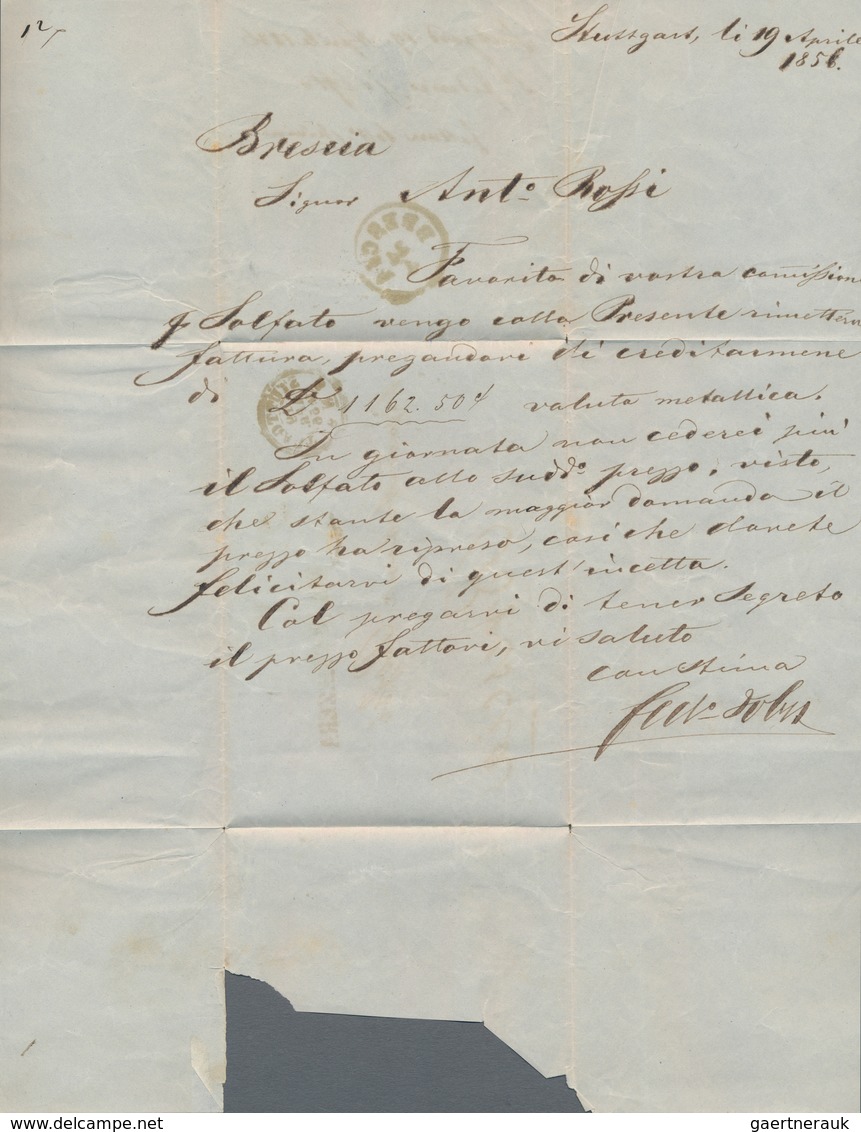 Stuttgart, li 19 Aprile
1856.
Brescia
Signor Anto. Rossi
Favorito di vostra comissione
p Solfato vengo colla Presente rimettervi
fattura, pregandovi di creditarmene
di 1162.50 valuta metallica.
In giornata non cederei più
il Solfato allo sudo. prezzo, visto,
che stante la maggior domanda il
prezzo ha ripreso, cosi che dovete
felicitarvi di quest'incetta.
Col pregarvi di tener Segreto
il prezzo fattovi, vi saluto
con stima
delcampe.net
gaertnerauk